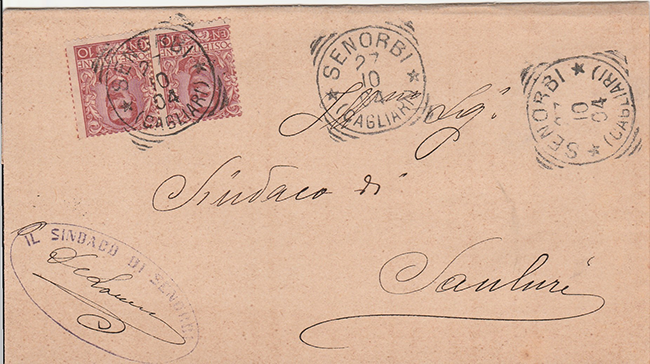 CENT. 10
POSTE
CENT. 10
SENORBI
27
10
04
(CAGLIARI)
SENORBI
27
10
04
(CAGLIARI)
SENORBI
27
10
04
(CAGLIARI)
Sig.
Sindaco di
Sanluri
IL SINDACO DI SENORBI